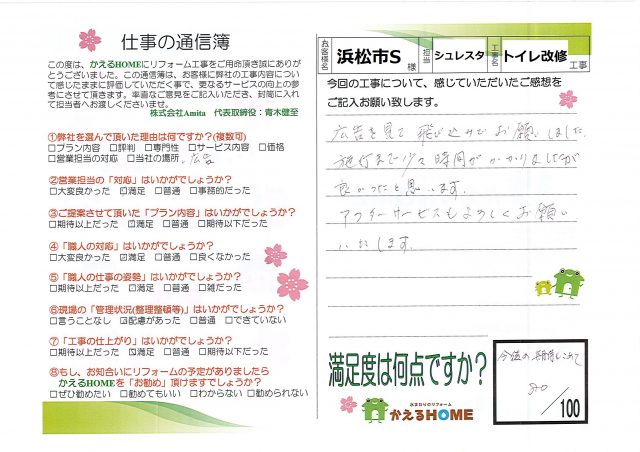 仕事の通信簿
この度は、かえるHOMEにリフォーム工事をご用命頂き誠にありが
とうございました。この通信簿は、お客様に弊社の工事内容につい
て感じたままに評価していただく事で、更なるサービスの向上の参
考にさせて頂きます。率直なご意見をご記入いただき、封筒に入れ
て担当者へお渡しくださいませ。
株式会社Amita 代表取締役:青木健至
①弊社を選んで頂いた理由は何ですか?(複数可)
□プラン内容 □評判 □専門性 □サービス内容 □価格
□営業担当の対応 □当社の場所 広告
②営業担当の「対応」はいかがでしょうか?
□大変良かった ☑満足 □普通 □事務的だった
③ご提案させて頂いた「プラン内容」はいかがでしょうか?
□期待以上だった ☑満足 □普通 □期待以下だった
④「職人の対応」はいかがでしょうか?
□大変良かった ☑満足 □普通 □良くなかった
⑤「職人の仕事の姿勢」はいかがでしょうか?
□期待以上だった ☑満足 □普通 □雑だった
⑥現場の「管理状況(整理整頓等)」はいかがでしょうか?
□言うことなし ☑配慮があった □普通 □できていない
⑦「工事の仕上がり」はいかがでしょうか?
□期待以上だった ☑満足 □普通 □期待以下だった
⑧もし、お知合いにリフォームの予定がありましたら
かえるHOMEを「お勧め」頂けますでしょうか?
□ぜひ勧めたい □勧めてもいい □わからない □勧められない
お客様名 浜松市S 様 担当 シュレスタ 工事名 トイレ改修 工事
今回の工事について、感じていただいたご感想を
ご記入お願い致します。
広告を見て飛び込みでお願いしました。
施行まで少々時間がかかりましたが
良かったと思います。
アフターサービスもよろしくお願い
いたします。
満足度は何点ですか?
今後の期待しこめて
80
/100
水まわりのリフォーム
かえるHOME